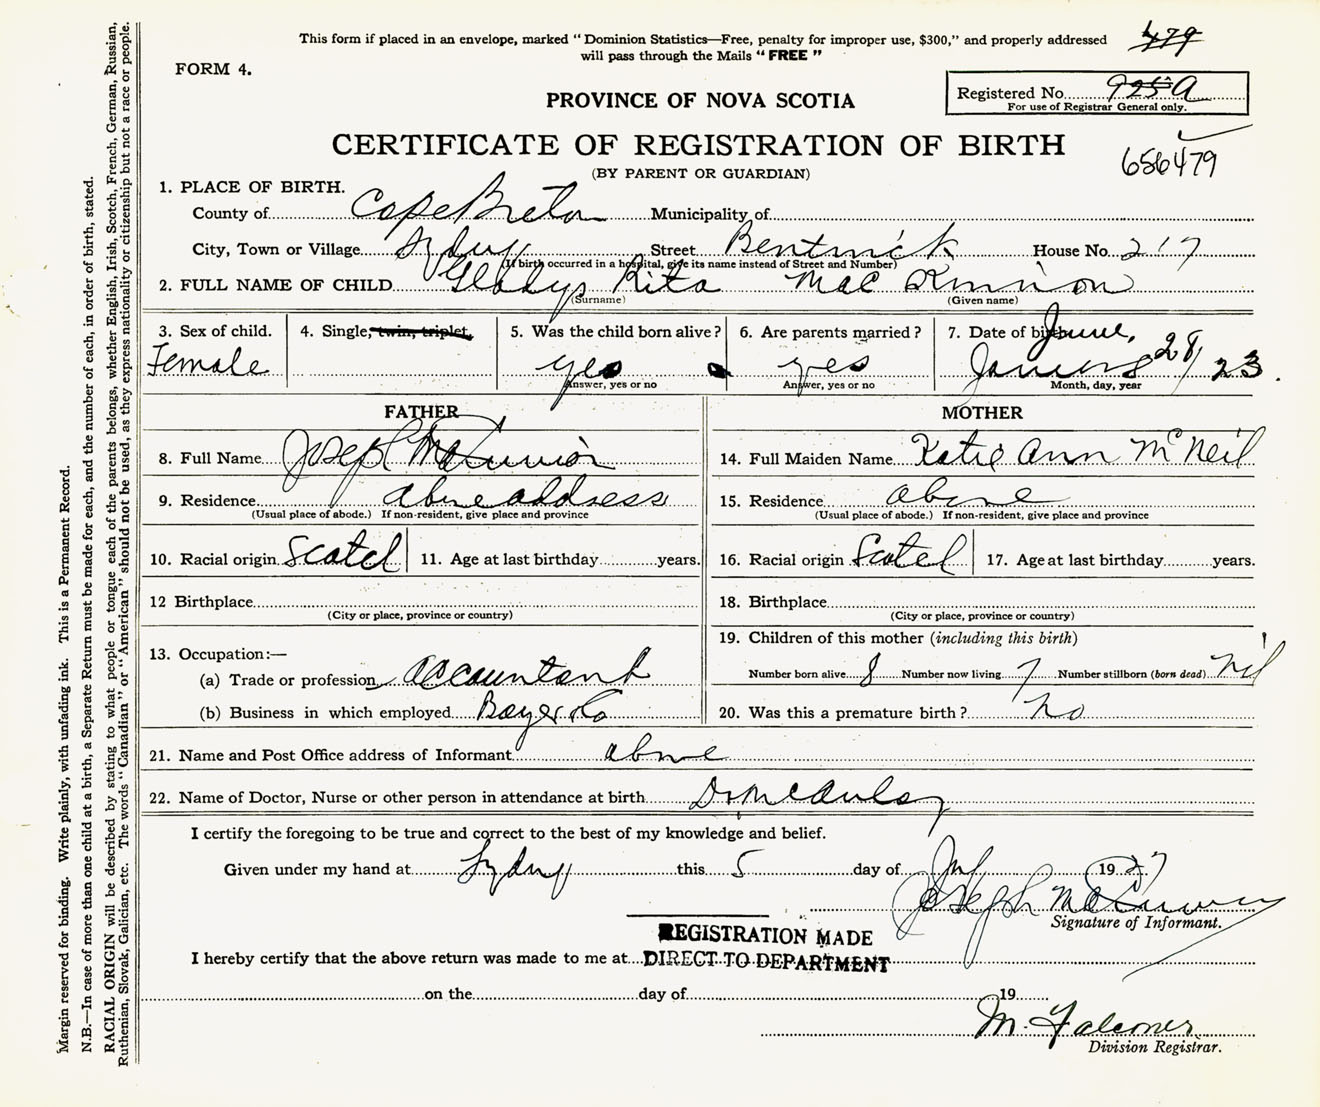 This form if placed in an envelope, marked "Dominion Statistics—Free, penalty for improper use, $300," and properly addressed
will pass through the Mails "FREE"
479
FORM 4.
Registered No. 925 A
For use of Registrar General only.
PROVINCE OF NOVA SCOTIA
CERTIFICATE OF REGISTRATION OF BIRTH
(BY PARENT OR GUARDIAN)
656479
1. PLACE OF BIRTH.
County of Cape Breton Municipality of
City, Town or Village Sydney Street Bentinick House No. 217
(If birth occurred in a hospital, give its name instead of Street and Number)
2. FULL NAME OF CHILD Gladys Rita Mac Kinnon
(Surname) (Given name)
3. Sex of child. 4. Single, twin, triplet. 5. Was the child born alive? 6. Are parents married? 7. Date of birth
Female yes yes January 28/23.
Answer, yes or no Answer, yes or no Month, day, year
FATHER MOTHER
8. Full Name Joseph McKinnon 14. Full Maiden Name Katie Ann McNeil
9. Residence above address 15. Residence above
(Usual place of abode.) If non-resident, give place and province (Usual place of abode.) If non-resident, give place and province
10. Racial origin Scotch 11. Age at last birthday years. 16. Racial origin Scotch 17. Age at last birthday years.
12 Birthplace 18. Birthplace
(City or place, province or country) (City or place, province or country)
19. Children of this mother (including this birth)
13. Occupation:—
(a) Trade or profession accountant Number born alive 8 Number now living 7 Number stillborn (born dead) Nil
(b) Business in which employed Co 20. Was this a premature birth? No
21. Name and Post Office address of Informant above
22. Name of Doctor, Nurse or other person in attendance at birth Dr McAulay
I certify the foregoing to be true and correct to the best of my knowledge and belief.
Given under my hand at Sydney this 5 day of 19 27
Joseph McKinnon
Signature of Informant.
REGISTRATION MADE
I hereby certify that the above return was made to me at DIRECT TO DEPARTMENT
on the day of 19
M. Falconer
Division Registrar.
Margin reserved for binding. Write plainly, with unfading ink. This is a Permanent Record.
N.B.—In case of more than one child at a birth, a Separate Return must be made for each, and the number of each, in order of birth, stated.
RACIAL ORIGIN will be described by stating to what people or tongue each of the parents belongs, whether English, Irish, Scotch, French, German, Russian,
Ruthenian, Slovak, Galician, etc. The words "Canadian" or "American" should not be used, as they express nationality or citizenship but not a race or people.